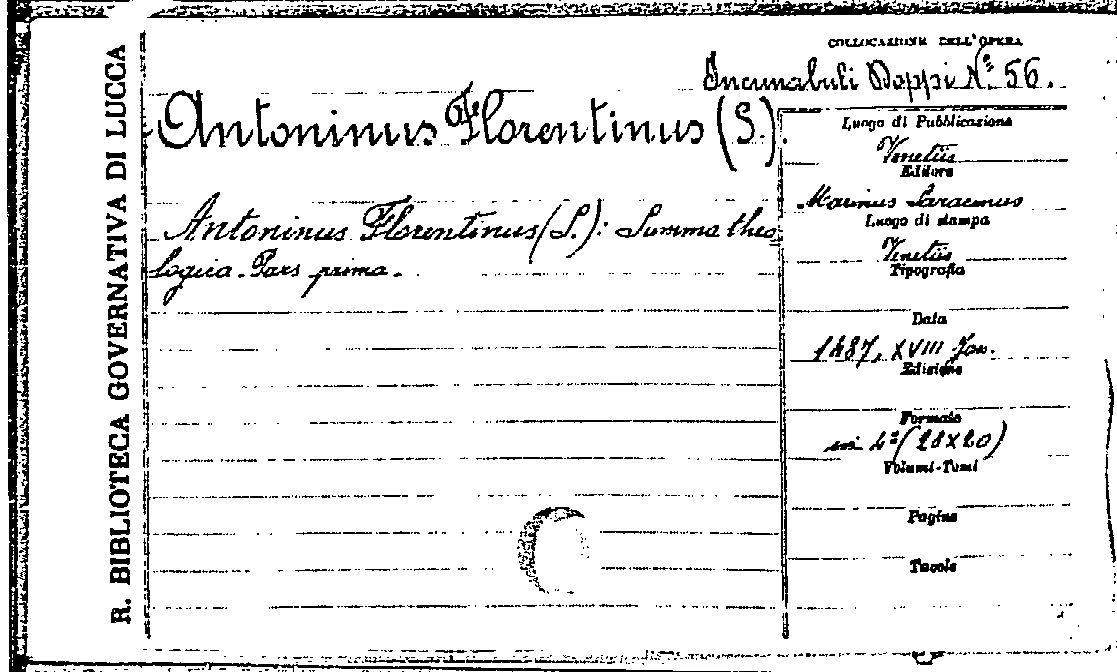 R. BIBLIOTECA GOVERNATIVA DI LUCCA
COLLOCAZIONE DELL'OPERA
Incunabuli Doppi N.º 56.
Antoninus Florentinus (S.).
Antoninus Florentinus (S.): Summa theo
logica. Pars prima.
Luogo di Pubblicazione
Venetiis
Editore
Marinus Saracenus
Luogo di stampa
Venetiis
Tipografia
Data
1487, XVIII Jan.
Edizione
Formato
in 4º (28x20)
Volumi-Tomi
Pagine
Tavole